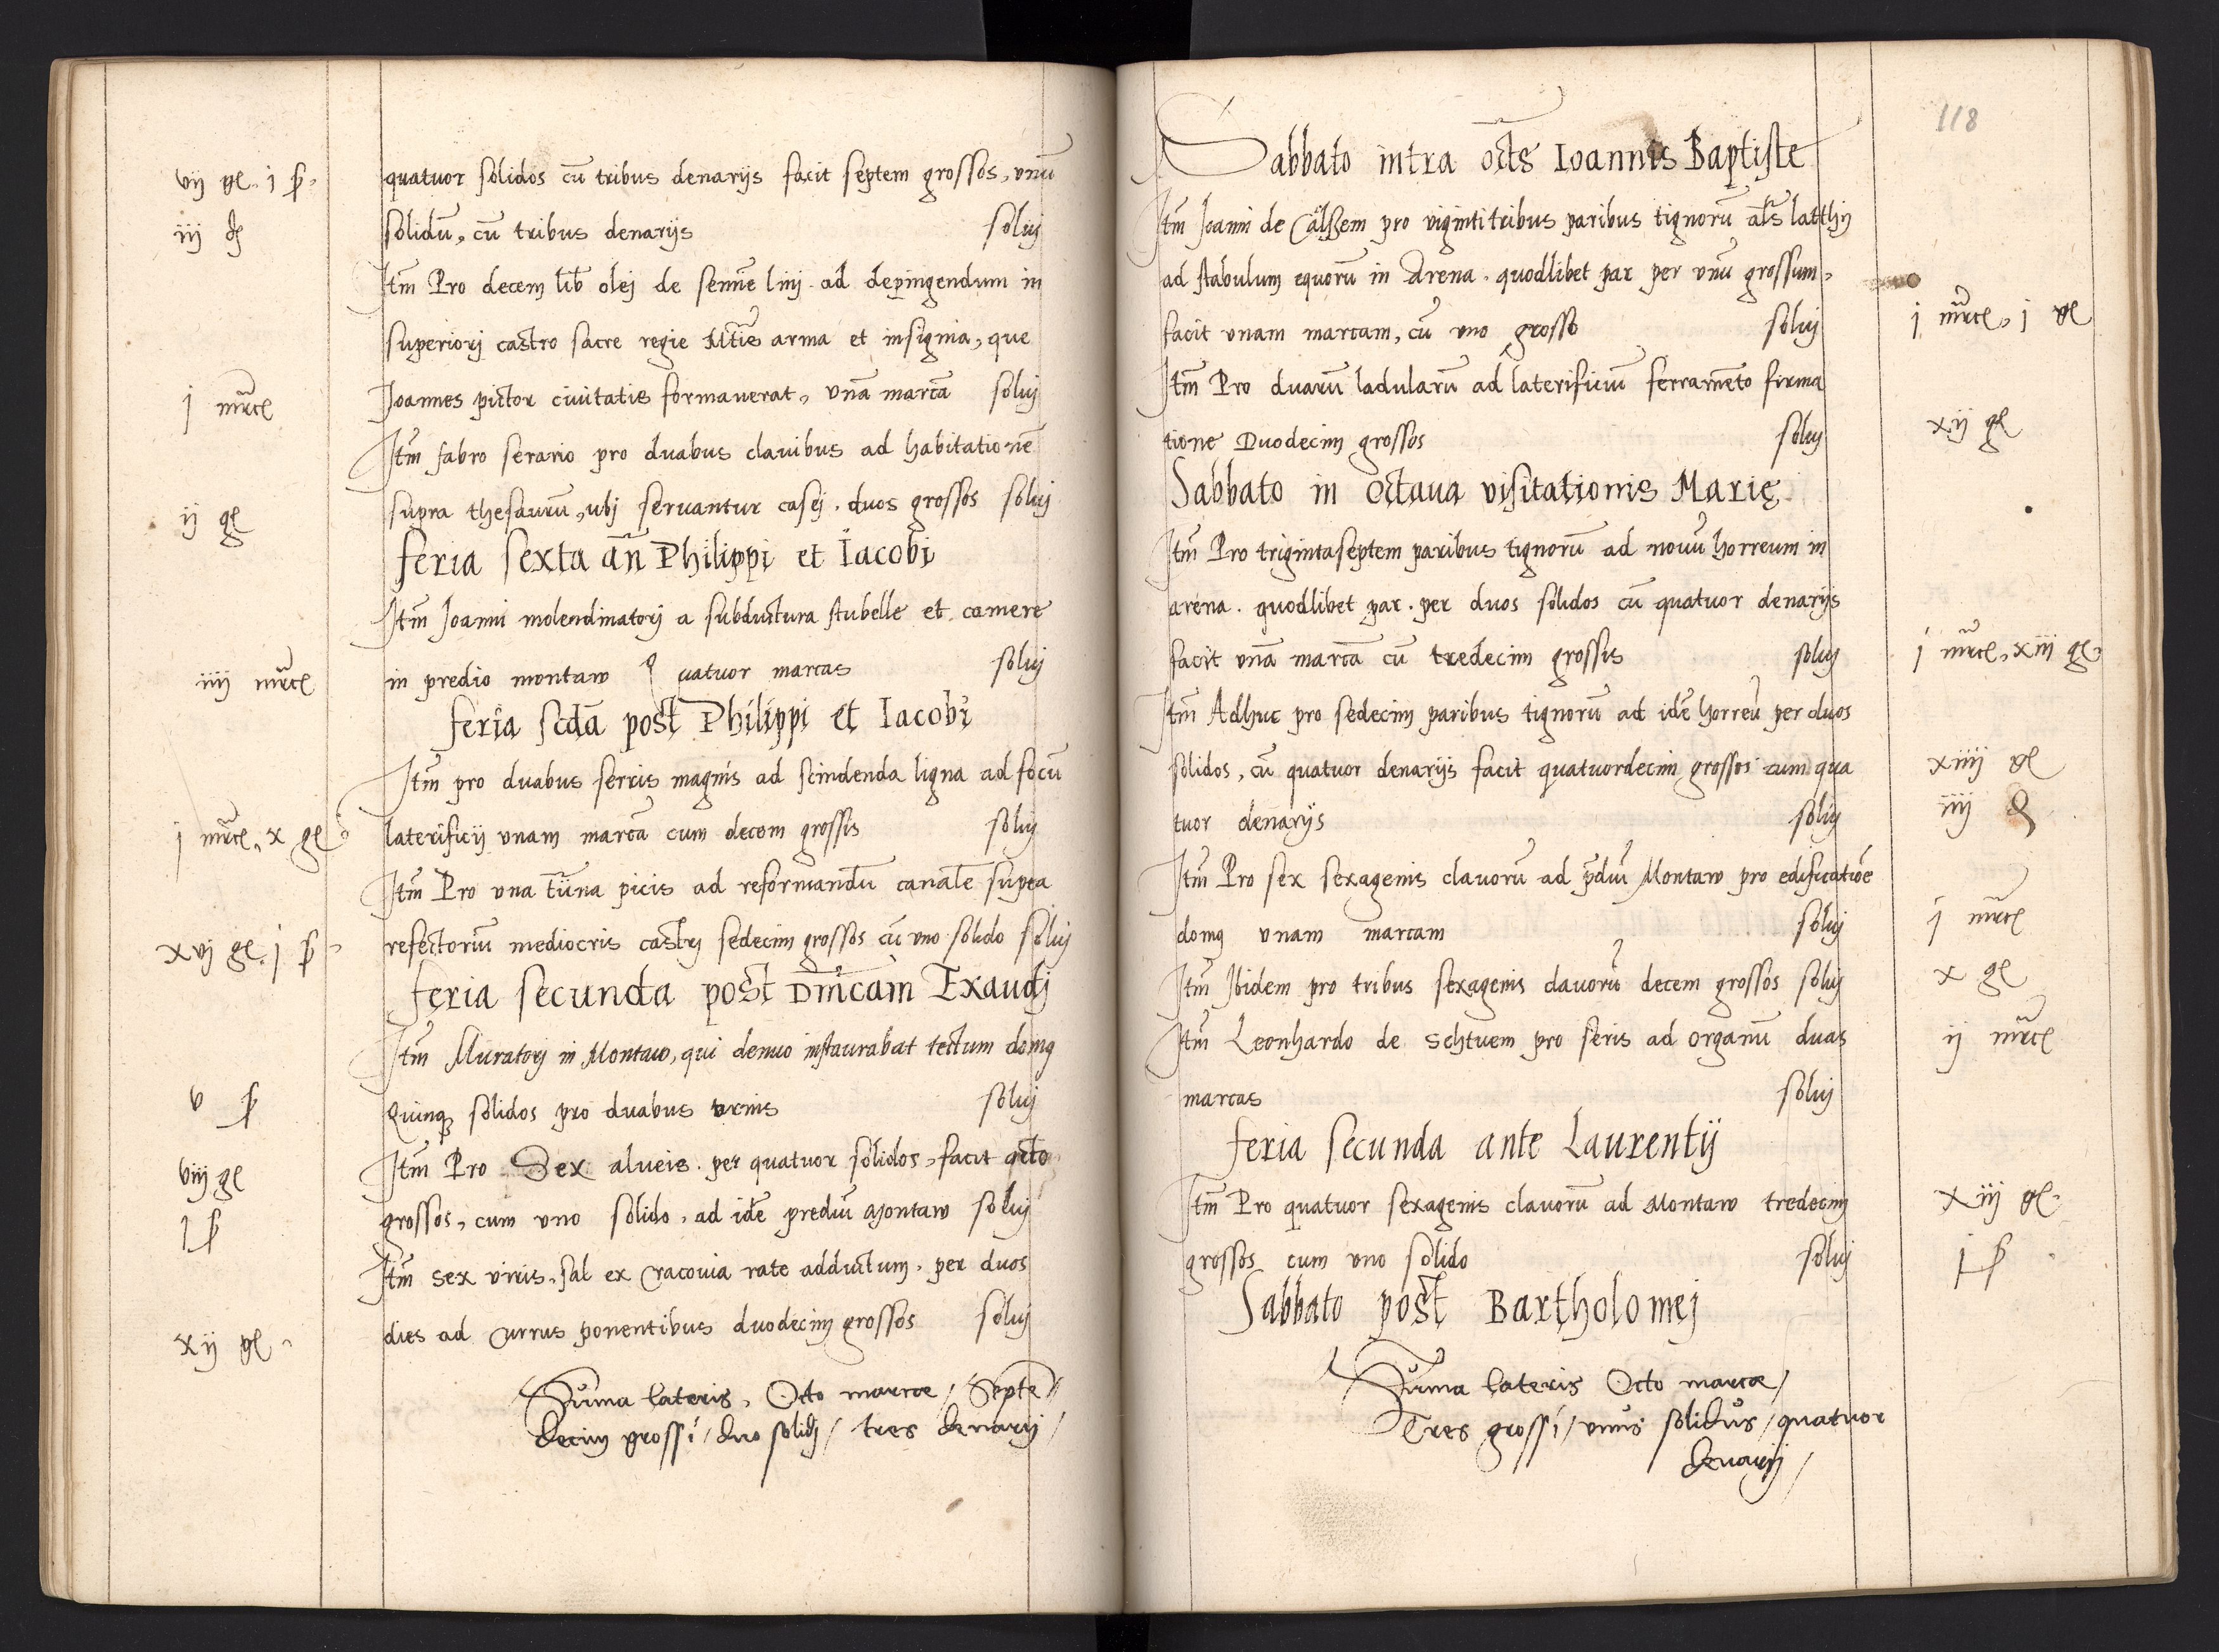 vij gl. j ß.
quatuor solidos cũ tribus denarijs facit septem grossos, vnũ
iij d
solidũ, cũ tribus denarijs soluj
Itm̃ Pro decem lib olej de semĩe linj. ad depingendum in
superiorj castro sacre regie Mt̃is arma et insignia, que
j mrce
Joannes pictor ciuitatis formauerat, vnã marcã soluj
Itm̃ fabro serario pro duabus clauibus ad habitationẽ
ij gl
supra thesaurũ, ubj seruantur casej. duos grossos soluj
feria sexta añ Philippi et Iacobi
Itm̃ Joanni molendinatorj a subductura stubelle et camere
iiij mrce
in predio montaw Quatuor marcas soluj
feria scdã post Philippi et Iacobi
Itm̃ pro duabus serris magnis ad scindenda ligna ad focũ
j mrce, x gl
laterificij vnam marcã cum decem grossis soluj
Itm̃ Pro vna tũna picis ad reformandũ canalẽ supra
xvj gl. j ß.
refectoriũ mediocris castrj sedecim grossos cũ vno solido soluj
feria secunda post Dm̃cam Exaudj
Itm̃ Muratorj in Montaw, qui denuo instaurabat tectum domꝰ
v ß
Quinqꝫ solidos pro duabus vrnis soluj
viij gl
Itm̃ Pro Sex alueis. per quatuor solidos, facit octo
j ß
grossos, cum vno solido, ad idẽ prediũ Montaw soluj
Itm̃ sex viris, sal ex Cracouia rate adductum. per duos
xij gl.
dies ad currus ponentibus duodecim grossos soluj
Sum̃a lateris, Octo marcæ / Septẽ
decim grossi / duo solidj / tres denarij /
118
Sabbato intra oct̃s Ioannis Baptiste
Itm̃ Joanni de Calssem pro vigintitribus paribus tignorũ al̃s latthij
ad stabulum equorũ in Arena. quodlibet par per vnũ grossum,
facit vnam marcam, cũ vno grosso soluj
j mrce, j gl
Itm̃ Pro duarũ ladularũ ad laterificiũ ferramẽto firma
tione Duodecim grossos soluj
xij gl
Sabbato in octaua visitationis Marię
Itm̃ Pro trigintaseptem paribus tignorũ ad nouũ horreum in
arena. quodlibet par. per duos solidos cũ quatuor denarijs
facit vnã marcã cũ tredecim grossis soluj
j mrce, xiij gl.
Itm̃ Adhuc pro sedecim paribus tignorũ ad idẽ horreũ per duos
solidos, cũ quatuor denarijs facit quatuordecim grossos cum qua
xiiij gl
tuor denarijs soluj
iiij d
Itm̃ Pro sex sexagenis clauorũ ad p̃diũ Montaw pro edificatiõe
domꝰ vnam marcam soluj
j mrce
Itm̃ Ibidem pro tribus sexagenis clauorũ decem grossos soluj
x gl
Itm̃ Leonhardo de Schtuem pro seris ad organũ duas
ij mrce
marcas soluj
feria secunda ante Laurentij
Itm̃ Pro quatuor sexagenis clauorũ ad Montaw tredecim
xiij gl.
grossos cum vno solido soluj
j ß
Sabbato post Bartholomej
Sum̃a lateris Octo marcæ /
Tres grossi / vnus solidus / quatuor
denarij /